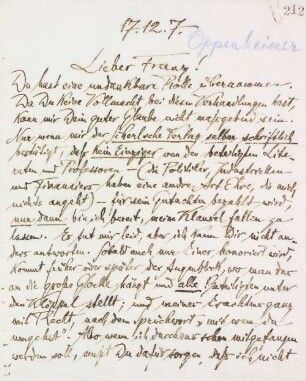 212
17.12.7.
Oppenheimer
Lieber Franz!
Du hast eine undankbare Rolle übernommen.
Da Du keine Vollmacht bei diesen Verhandlungen hast,
kann mir Dein guter Glaube nicht massgebend sein.
Nur wenn mir der Verlag selber schriftlich
bestätigt, daß kein Einziger von den beteiligten Lite-
raten und Professoren – (die Politiker, Industriellen
und Financiers haben eine andre Art Ehre, die mich
nichts angeht) – für sein Gutachten bezahlt wird,
nur dann bin ich bereit, meine Klausel fallen zu
lassen. Es tut mir leid, aber ich kann Dir nicht an-
ders antworten. Sobald auch nur Einer honoriert wird,
kommt früher oder später der Augenblick, wo man das
an die große Glocke hängt und alle Beteiligten unter
den Klöppel stellt; und meines Erachtens ganz
mit Recht, nach dem Sprichwort „mit wem du
umgehst". Also wenn ich durchaus schon mitgefangen
werden soll, mußt Du dafür sorgen, daß ich nicht